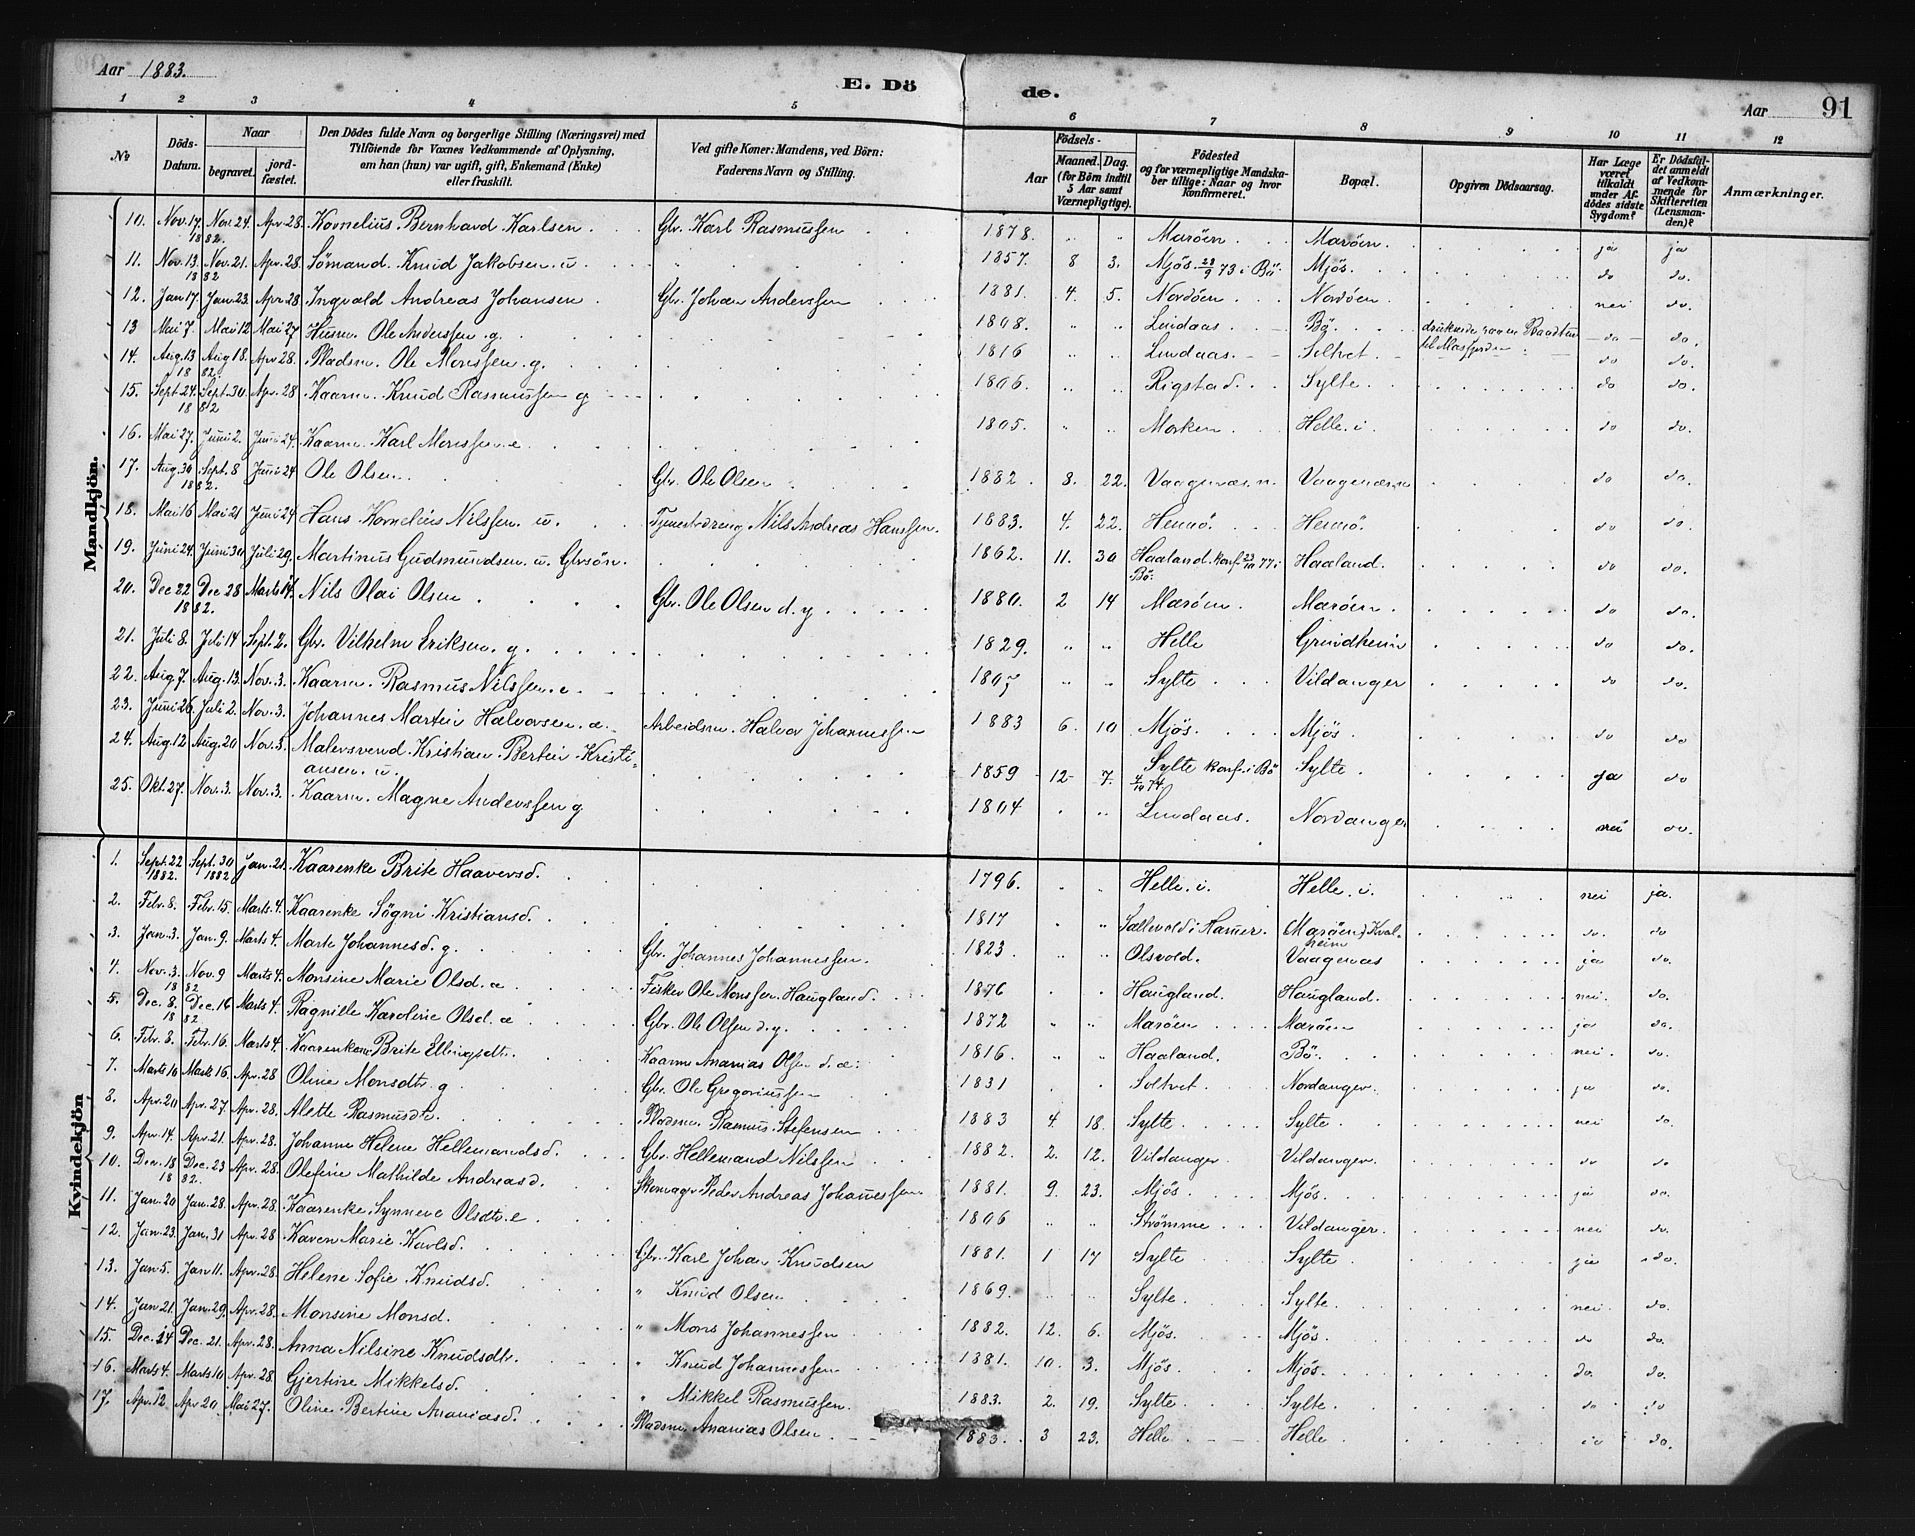 Aar 1883. E. Dö de. Aar 91
1 2 3 4 5 6 7 8 9 10 11 12
№ Döds-Datum. Naar begravet. jord-fæstet. Den Dödes fulde Navn og borgerlige Stilling (Næringsvei) med Tilföiende for Voxnes Vedkommende af Oplysning, om han (hun) var ugift, gift, Enkemand (Enke) eller fraskilt. Ved gifte Koner: Mandens, ved Börn: Faderens Navn og Stilling. Födsels- Aar Maaned. Dag. (for Börn indtil 5 Aar samt Værnepligtige). Födested og for værnepligtige Mandska-ber tillige: Naar og hvor konfirmeret. Bopæl. Opgiven Dödsaarsag. Har Læge været tilkaldt under Af-dödes sidste Sygdom? Er Dödsfal-det anmeldt af Vedkom-mende for Skifteretten (Lensman-den)? Anmærkninger.
Mandkjön.
10. Nov. 17. 1882. Nov. 24 Apr. 28. Kornelius Bernhard Karlsen Gbr. Karl Rasmussen 1878. " " Marøen Marøen. ja ja
11. Nov. 13. 1882 Nov. 21. Apr. 28. Sömand. Knud Jakobsen. u 1857. 8 3. Mjøs. 28/9 73 i Bø. Mjøs. do do.
12. Jan 17. Jan. 23. Apr 28. Ingvald Andreas Johansen Gbr. Johan Anderssen 1881. 4. 5. Nordøen Nordøen. nei do.
13 Mai 7. Mai 12 Mai 27 Husm. Ole Anderssen. g. 1808. " " Lindaas. Bø. druknede til Masfjorden do do.
14. Aug. 13 1882. Aug 18. Apr 28. Pladsm. Ole Monssen. g. 1816 " " Lindaas. Soltvet. do do.
15. Sept. 24. 1882 Sept. 30 Apr. 28 Kaarm. Knud Rasmussen g 1806. " " Rigstad. Sylte. do do.
16. Mai 27. Juni 2. Juni 24. Kaarm. Karl Monssen. e 1805. " " Morken Helle. i. do do.
17. Aug. 30 1882. Sept. 8 Juni 24 Ole Olsen. Gbr. Ole Olsen 1882 8. 22. Vaagenæs. n. Vaagenæs. n do do.
18. Mai 16 Mai 21 Juni 24 Hans Kornelius Nilssen. u. Tjenestedreng Nils Andreas Hanssen. 1883. 4. 22. Hernø. Hernø. do do.
19. Juni 24. Juni 30 Juli 29. Martinus Gudmundsen. u. Gbrsøn. 1862. 11. 30 Haaland. konf. 23/10 77 i Bø. Haaland. do do.
20. Dec 22 1882. Dec 28 Marts 4. Nils Olai Olsen Gbr. Ole Olsen d. y. 1880. 2 14 Marøen. Marøen. do do.
21. Juli 8. Juli 14 Sept. 2. Gbr. Vilhelm Eriksen. g. 1829. " " Helle Grundheim do do.
22. Aug 7. Aug. 13. Nov. 3. Kaarm. Rasmus Nilssen. e 1807 " " Sylte Vildanger do do.
23. Juni 26. Juli 2. Nov. 3. Johannes Martin Halvorsen. æ. Arbeidsm. Halvor Johannessen 1883 6. 10 Mjøs. Mjøs. do do
24. Aug. 12 Aug. 20 Nov. 3. Malersvend. Kristian Bertin Kristi-
ansen. u. 1859 12 7. Sylte konf. i Bø 4/10 74. Sylte. ja do
25. Okt. 27. Nov. 3. Nov. 3. Kaarm. Magne Anderssen g 1804 " " Lindaas. Nordanger nei do.
Kvindekjön
1. Sept. 22 1882. Sept. 30 1882 Jan. 21. Kaarenke Brite Haaversd. 1796. " " Helle. i. Helle. i. nei ja.
2. Febr. 8. Febr. 15. Marts. 4. Kaarenke Søgni Kristiansd. 1817 " " Sallevold i Hamer. Marøen, Kval-heim do. do
3. Jan. 3. Jan. 9. Marts 4. Marte Johannesd. g. Gbr. Johannes Johannessen. 1823 " " Olsvold. Vaagenæs ja do.
4. Nov. 3. 1882 Nov. 9 Marts 4. Monsine Marie Olsd. æ Fisker Ole Monssen. Haugland. 1876 " " Haugland. Haugland. nei. do.
5. Dec. 8. 1882 Dec. 16 Marts 4. Ragnille Karoline Olsd. æ Gbr. Ole Olsen d. y. 1872 " " Marøen Marøen ja do.
6. Febr. 8. Febr. 16. Marts 4. Kaarenkone Brite Ellingsdtr. Kaarm. Ananias Olsen d. æ: 1816. " " Haaland. Bø. nei. do.
7. Marts 10 Marts 16. Apr. 28 Oline Monsdtr. g Gbr. Ole Gregoriussen 1831 " " Soltvet Nordanger. ja do.
8. Apr. 20 Apr. 27. Apr. 28. Alette Rasmusdtr. Pladsm. Rasmus Stefensen 1883 4 18. Sylte. Sylte. nei do.
9. Apr. 14. Apr. 21. Apr. 28. Johanne Helene Hellemandsd. Gbr. Hellemand Nilssen 1882. 2. 12. Vildanger. Vildanger. do do
10. Dec. 18 1882. Dec. 23 Apr. 28. Olefine Mathilde Andreasd. Skomager Peder Andreas Johannessen 1881. 9. 23. Mjøs. Mjøs. ja do.
11. Jan. 20 Jan. 28. Apr. 28. Kaarenke Synneve Olsdtr. e 1806 " " Strømme Vildanger. nei do.
12. Jan. 23. Jan. 31 Apr. 28 Karen Marie Karlsd. Gbr. Karl Johan Knudsen 1881. 1 17 Sylte Sylte. ja do.
13. Jan. 5. Jan 11. Apr. 28. Helene Sofie Knudsd. " Knud Olsen 1869. " " Sylte. Sylte. nei. do.
14. Jan. 21. Jan. 29. Apr. 28. Monsine Monsd. " Mons Johannessen 1882. 12. 6. Mjøs. Mjøs. do do.
15. Dec. 14 Dec. 21. Apr. 28. Anna Nilsine Knudsdtr. " Knud Johannessen 1881. 10. 3. Mjøs. Mjøs. do. do.
16. Marts 4. Marts 10 Apr. 28 Gjertine Mikkelsd. " Mikkel Rasmussen. 1883. 2. 19. Sylte. Sylte. do do
17. Apr. 12 Apr 20 Mai 27. Oline Bertine Ananiasd. Pladsm. Ananias Olsen 1883. 3 23. Helle. Helle. do do.